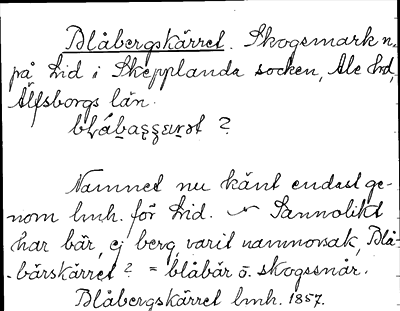 Blåbergskärret. Skogsmark n.
på Lid i Skepplanda socken, Ale hd,
Älfsborgs län.
?
Namnet nu känt endast ge-
nom lmh. för Lid. Sannolikt
har bär, ej berg, varit namnorsak, Blå-
bärskärret? = blåbär o. skogssnår.
Blåbergskärret lmh. 1857.